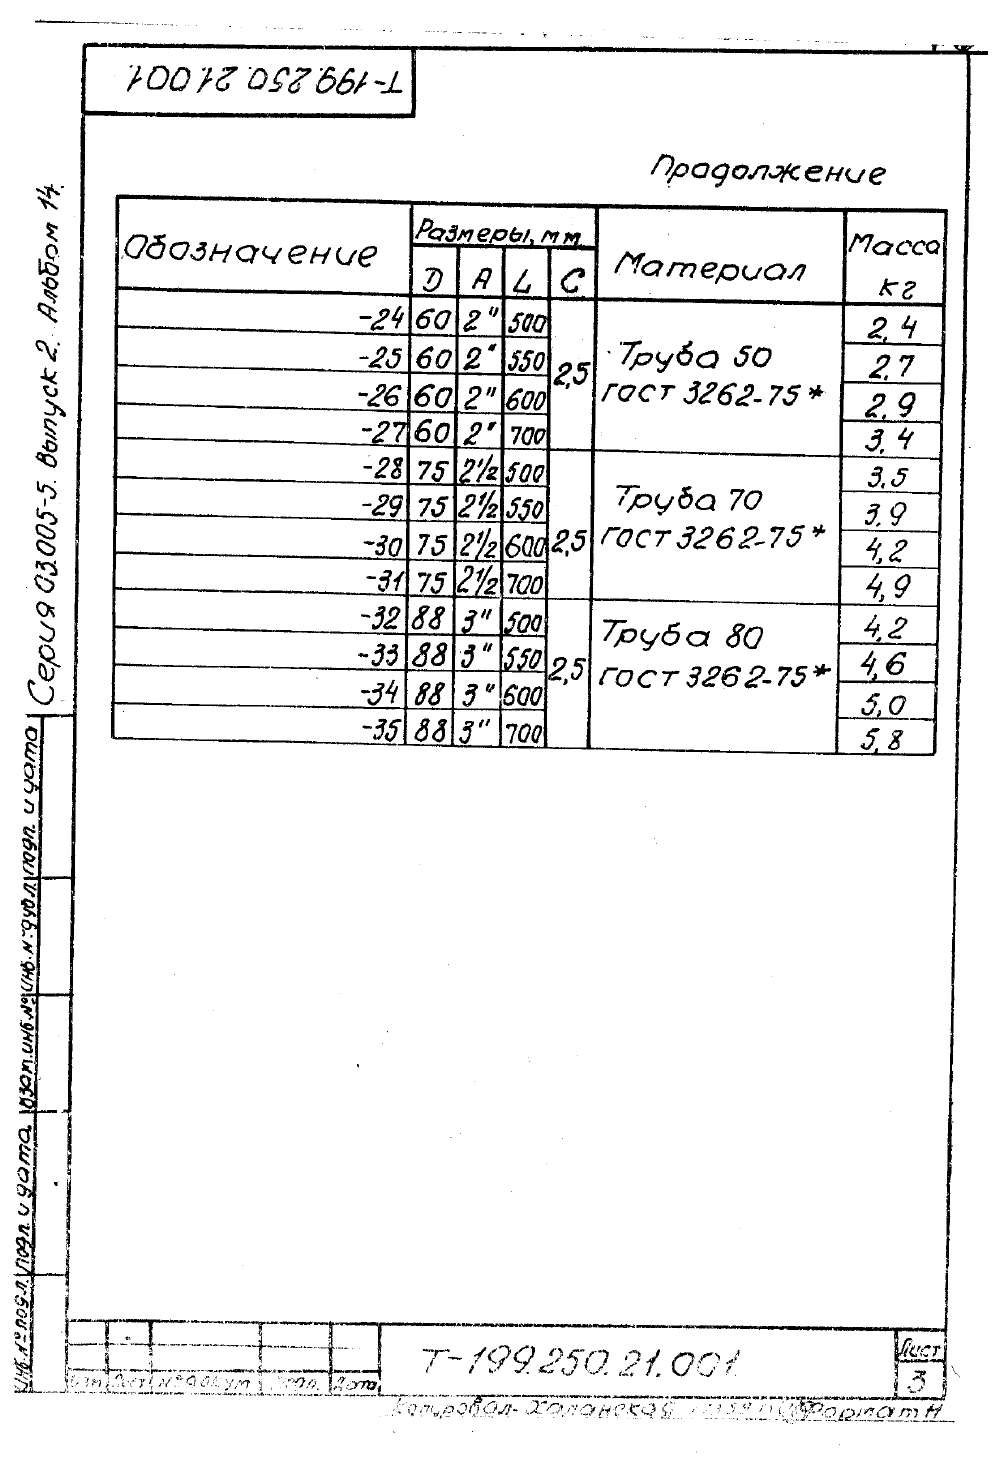 Т-199.250.21.001
Продолжение
Обозначение Размеры, мм Материал Масса кг
D A L C
-24 60 2" 500 2,5 Труба 50 ГОСТ 3262-75* 2,4
-25 60 2" 550 2,7
-26 60 2" 600 2,9
-27 60 2" 700 3,4
-28 75 2½ 500 2,5 Труба 70 ГОСТ 3262-75* 3,5
-29 75 2½ 550 3,9
-30 75 2½ 600 4,2
-31 75 2½ 700 4,9
-32 88 3" 500 2,5 Труба 80 ГОСТ 3262-75* 4,2
-33 88 3" 550 4,6
-34 88 3" 600 5,0
-35 88 3" 700 5,8
Серия 03005-5. Выпуск 2. Альбом 14.
Инв.№подл. Подп. и дата Взам.инв.№ Инв.№дубл. Подп. и дата
Изм Лист № докум Подп. Дата
Т-199.250.21.001
Лист
3
Копировал- Халанская Формат